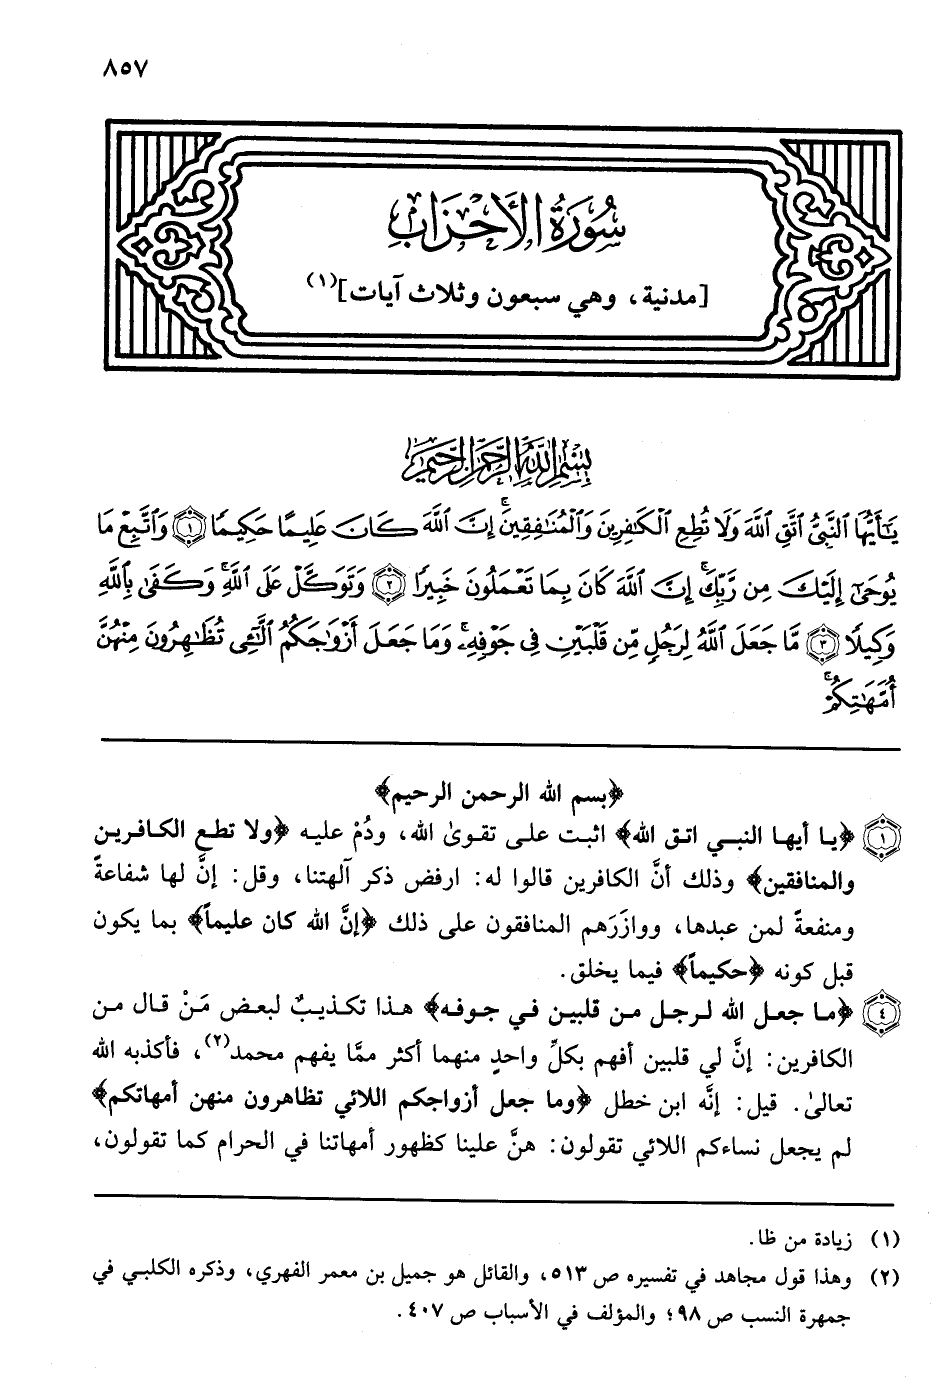 ٨٥٧
سُورَةُ الأَحْزَابِ
[مدنية، وهي سبعون وثلاث آيات](١)
بِسْمِ اللَّهِ الرَّحْمَٰنِ الرَّحِيمِ
يَٰٓأَيُّهَا ٱلنَّبِيُّ ٱتَّقِ ٱللَّهَ وَلَا تُطِعِ ٱلْكَٰفِرِينَ وَٱلْمُنَٰفِقِينَۗ إِنَّ ٱللَّهَ كَانَ عَلِيمًا حَكِيمًا ١ وَٱتَّبِعْ مَا
يُوحَىٰٓ إِلَيْكَ مِن رَّبِّكَۚ إِنَّ ٱللَّهَ كَانَ بِمَا تَعْمَلُونَ خَبِيرًا ٢ وَتَوَكَّلْ عَلَى ٱللَّهِۚ وَكَفَىٰ بِٱللَّهِ
وَكِيلًا ٣ مَّا جَعَلَ ٱللَّهُ لِرَجُلٍ مِّن قَلْبَيْنِ فِي جَوْفِهِۦۚ وَمَا جَعَلَ أَزْوَٰجَكُمُ ٱلَّٰٓـِٔي تُظَٰهِرُونَ مِنْهُنَّ
أُمَّهَٰتِكُمْۚ
﴿بسم الله الرحمن الرحيم﴾
١ ﴿يا أيها النبي اتق الله﴾ اثبت على تقوىٰ الله، ودُمْ عليه ﴿ولا تطع الكافرين
والمنافقين﴾ وذلك أنَّ الكافرين قالوا له: ارفض ذكر آلهتنا، وقل: إنَّ لها شفاعةً
ومنفعةً لمن عبدها، ووازَرَهم المنافقون على ذلك ﴿إنَّ الله كان عليماً﴾ بما يكون
قبل كونه ﴿حكيماً﴾ فيما يخلق.
٤ ﴿ما جعل الله لرجل من قلبين في جوفه﴾ هذا تكذيبٌ لبعض مَنْ قال من
الكافرين: إنَّ لي قلبين أفهم بكلِّ واحدٍ منهما أكثر ممَّا يفهم محمد(٢)، فأكذبه الله
تعالىٰ. قيل: إنَّه ابن خطل ﴿وما جعل أزواجكم اللائي تظاهرون منهن أمهاتكم﴾
لم يجعل نساءكم اللائي تقولون: هنَّ علينا كظهور أمهاتنا في الحرام كما تقولون،
(١) زيادة من ظا.
(٢) وهذا قول مجاهد في تفسيره ص ٥١٣، والقائل هو جميل بن معمر الفهري، وذكره الكلبي في
جمهرة النسب ص ٩٨؛ والمؤلف في الأسباب ص ٤٠٧.